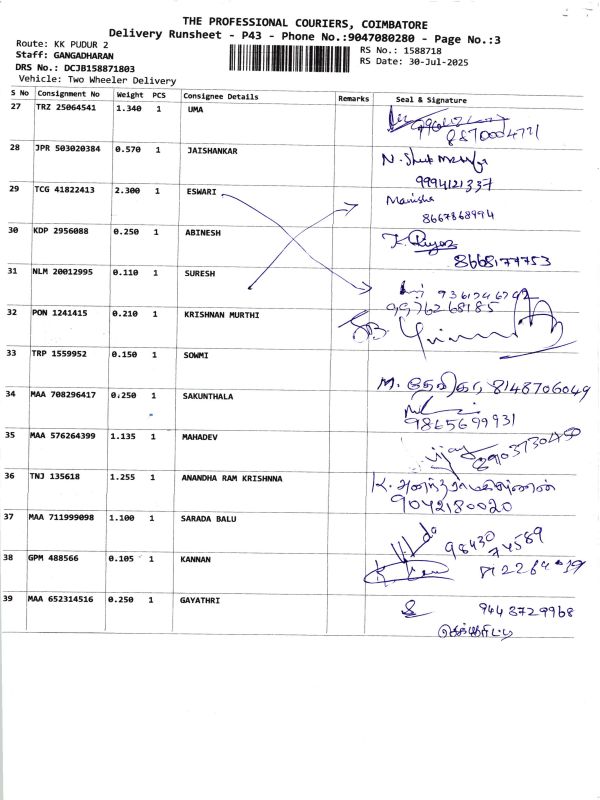 THE PROFESSIONAL COURIERS, COIMBATORE
Delivery Runsheet - P43 - Phone No.:9047080280 - Page No.:3
Route: KK PUDUR 2
Staff: GANGADHARAN
RS No.: 1588718
DRS No.: DCJB158871803
RS Date: 30-Jul-2025
Vehicle: Two Wheeler Delivery
S No Consignment No Weight PCS Consignee Details Remarks Seal & Signature
27 TRZ 25064541 1.340 1 UMA
8870004771
28 JPR 503020384 0.570 1 JAISHANKAR
9994121337
29 TCG 41822413 2.300 1 ESWARI Manisha
8667868994
30 KDP 2956088 0.250 1 ABINESH
8668177753
31 NLM 20012995 0.110 1 SURESH
9976268185
32 PON 1241415 0.210 1 KRISHNAN MURTHI
33 TRP 1559952 0.150 1 SOWMI M. தேவிகா, 8148706049
34 MAA 708296417 0.250 1 SAKUNTHALA
9865699931
35 MAA 576264399 1.135 1 MAHADEV Vijay
36 TNJ 135618 1.255 1 ANANDHA RAM KRISHNNA
9042180020
37 MAA 711999098 1.100 1 SARADA BALU 98430
74589
38 GPM 488566 0.105 1 KANNAN
39 MAA 652314516 0.250 1 GAYATHRI 9443729968